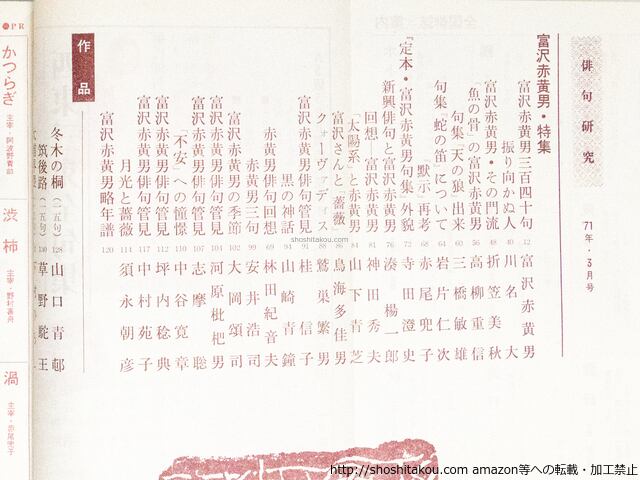 俳句研究
71年・3月号
富沢赤黄男・特集
富沢赤黄男三百四十句 12 富沢赤黄男
振り向かぬ人 40 川名大
富沢赤黄男・その門流 48 折笠美秋
「魚の骨」の富沢赤黄男 56 高柳重信
句集「天の狼」出来 60 三橋敏雄
句集「蛇の笛」について 64 岩片仁次
黙示・再考 68 赤尾兜子
「定本・富沢赤黄男句集」外貌 72 寺田澄史
新興俳句と富沢赤黄男 76 湊楊一郎
回想―富沢赤黄男 81 神田秀夫
「太陽系」と赤黄男 84 山下青芝
富沢さんと「薔薇」 86 鳥海多佳男
クォーヴァディス 88 鷲巣繁男
富沢赤黄男俳句管見 91 桂信子
黒の神話 94 山崎青鐘
赤黄男俳句回想 96 林田紀音夫
赤黄男三句 99 安井浩司
富沢赤黄男の季節 102 大岡頌司
富沢赤黄男俳句管見 104 河原枇杷男
富沢赤黄男俳句管見 107 志摩聡
「不安」への憧憬 110 中谷寛章
富沢赤黄男俳句管見 112 坪内稔典
富沢赤黄男俳句管見 117 中村苑子
月光と薔薇 114 須永朝彦
富沢赤黄男略年譜 120
作品
冬木の桐（二五句） 128 山口青邨
筑後路（二五句） 130 草野駝王
PR
かつらぎ
主宰・阿波野青畝
渋柿
主宰・野村喜舟
渦
主宰・赤尾兜子
shoshitakou.com
http://shoshitakou.com amazon等への転載・加工禁止